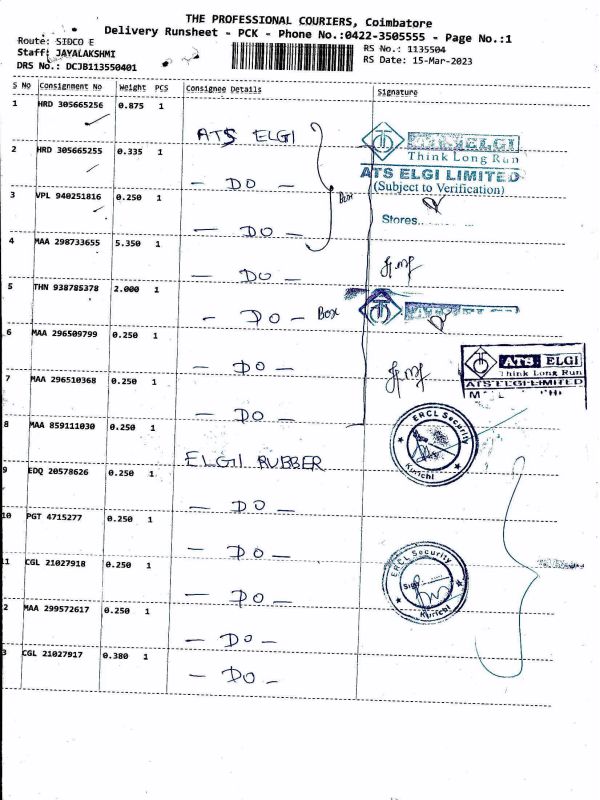 THE PROFESSIONAL COURIERS, Coimbatore
Delivery Runsheet - PCK - Phone No.:0422-3505555 - Page No.:1
Route: SIDCO E
RS No.: 1135504
Staff: JAYALAKSHMI
RS Date: 15-Mar-2023
DRS No.: DCJB113550401
S No Consignment No Weight PCS Consignee Details Signature
1 HRD 305665256 0.875 1 ATS ELGI
2 HRD 305665255 0.335 1 - DO -
3 VPL 940251816 0.250 1 - DO -
Box
4 MAA 298733655 5.350 1 - DO -
5 THN 938785378 2.000 1 - DO - Box
6 MAA 296509799 0.250 1 - DO -
7 MAA 296510368 0.250 1 - DO -
8 MAA 859111030 0.250 1 ELGI RUBBER
9 EDQ 20578626 0.250 1 - DO -
10 PGT 4715277 0.250 1 - DO -
11 CGL 21027918 0.250 1 - DO -
2 MAA 299572617 0.250 1 - DO -
3 CGL 21027917 0.380 1 - DO -
ELGI
Think Long Run
ATS ELGI LIMITED
(Subject to Verification)
Stores..
ATS ELGI
Think Long Run
ATS ELGI LIMITED
ERCL Security
Kurichi
ERCL Security
Sign
Kurichi